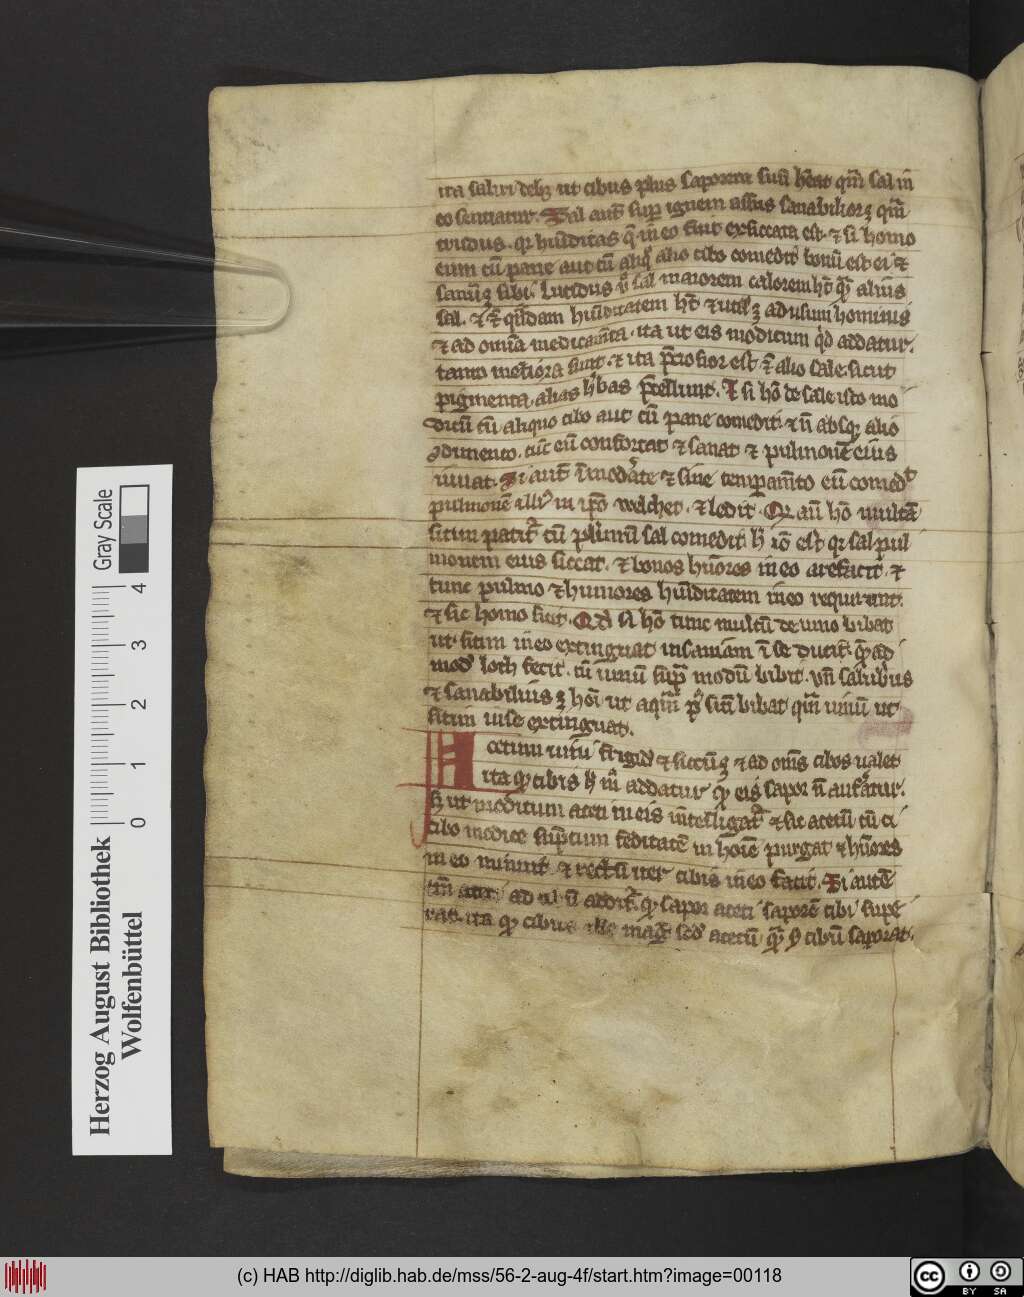 ita saliri debꝫ ut cibus plus saporem suū hēat qm̄ sal in
eo sentiatur. Sal aut̄ sup ignem assus sanabilior ꝫ qm̄
crudus. qr hūiditas q̄ in eo fuit exsiccata est. ⁊ si homo
eum cū pane aut cū aliq̊ alio cibo comedit bonū est ei ⁊
sanū ꝫ sibi. Lucidus ů sal maiorem calorem hꝫ qm̄ alius
sal. ⁊ ē q̄dam hūiditatem hꝫ ⁊ util ꝫ ad usum hominis
⁊ ad omīa medicam̄ta. ita ut eis modicum q̇d addatur.
tanto meliora sunt. ⁊ ita p̄ciosior est c̄ alio sale. sicut
pigmenta alias hbas p̄cellunt. ⁊ si hō de sale isto mo
dicū cū aliquo cibo aut cū pane comedit ⁊ n̄ absqꝫ alio
ꝯdimento. tūc eū confortat ⁊ sanat ⁊ pulmonē eius
iuuat. Si aut̄ īmod̓ate ⁊ sine temperam̄to eū comed̓it
pulmonē illi᷒ in ip̄o welchet. ⁊ ledit. Qr aū hō multā
sitim patit̄ cū plimū sal comedit h̓ iō est qr sal pul
monem eius siccat. ⁊ bonos hūores in eo arefacit. ⁊
tunc pulmo ⁊ humores hūiditatem in eo requirunt.
⁊ sic homo sitit. Qd̓ si hō tunc multū de uino bibat
ut sitim in eo extinguat insaniam ī se ducit. quēad
mod̓ loth fecit. cū uinū sup̄ modū bibit. vn̄ salubrius
⁊ sanabilius ꝫ hōi ut aquā p̱ sitī bibat qm̄ uinū ut
sitim in se extinguat.
Acetum uini frigid̓ ⁊ siccū ꝫ ⁊ ad om̄s cibos ualet
ita qꝫ cibis h̓ m̄ addatur qꝫ eis sapor n̄ auferatur.
s̓ ut modicum aceti in eis intelligat̄ ⁊ sic acetū cū ci
cibo modice sūptum feditatē in hoīe purgat ⁊ hūores
in eo minuit ⁊ rectū iter cibis in eo facit. Si autē
ad addit̄ qꝫ sapor aceti saporē cibi supe
rat. ita qꝫ cibus ille mag̓ sed̓ acetū qm̄ ẜ cibū saporat.
Gray Scale
0 1 2 3 4
Herzog August Bibliothek
Wolfenbüttel
(c) HAB http://diglib.hab.de/mss/56-2-aug-4f/start.htm?image=00118
cc BY SA